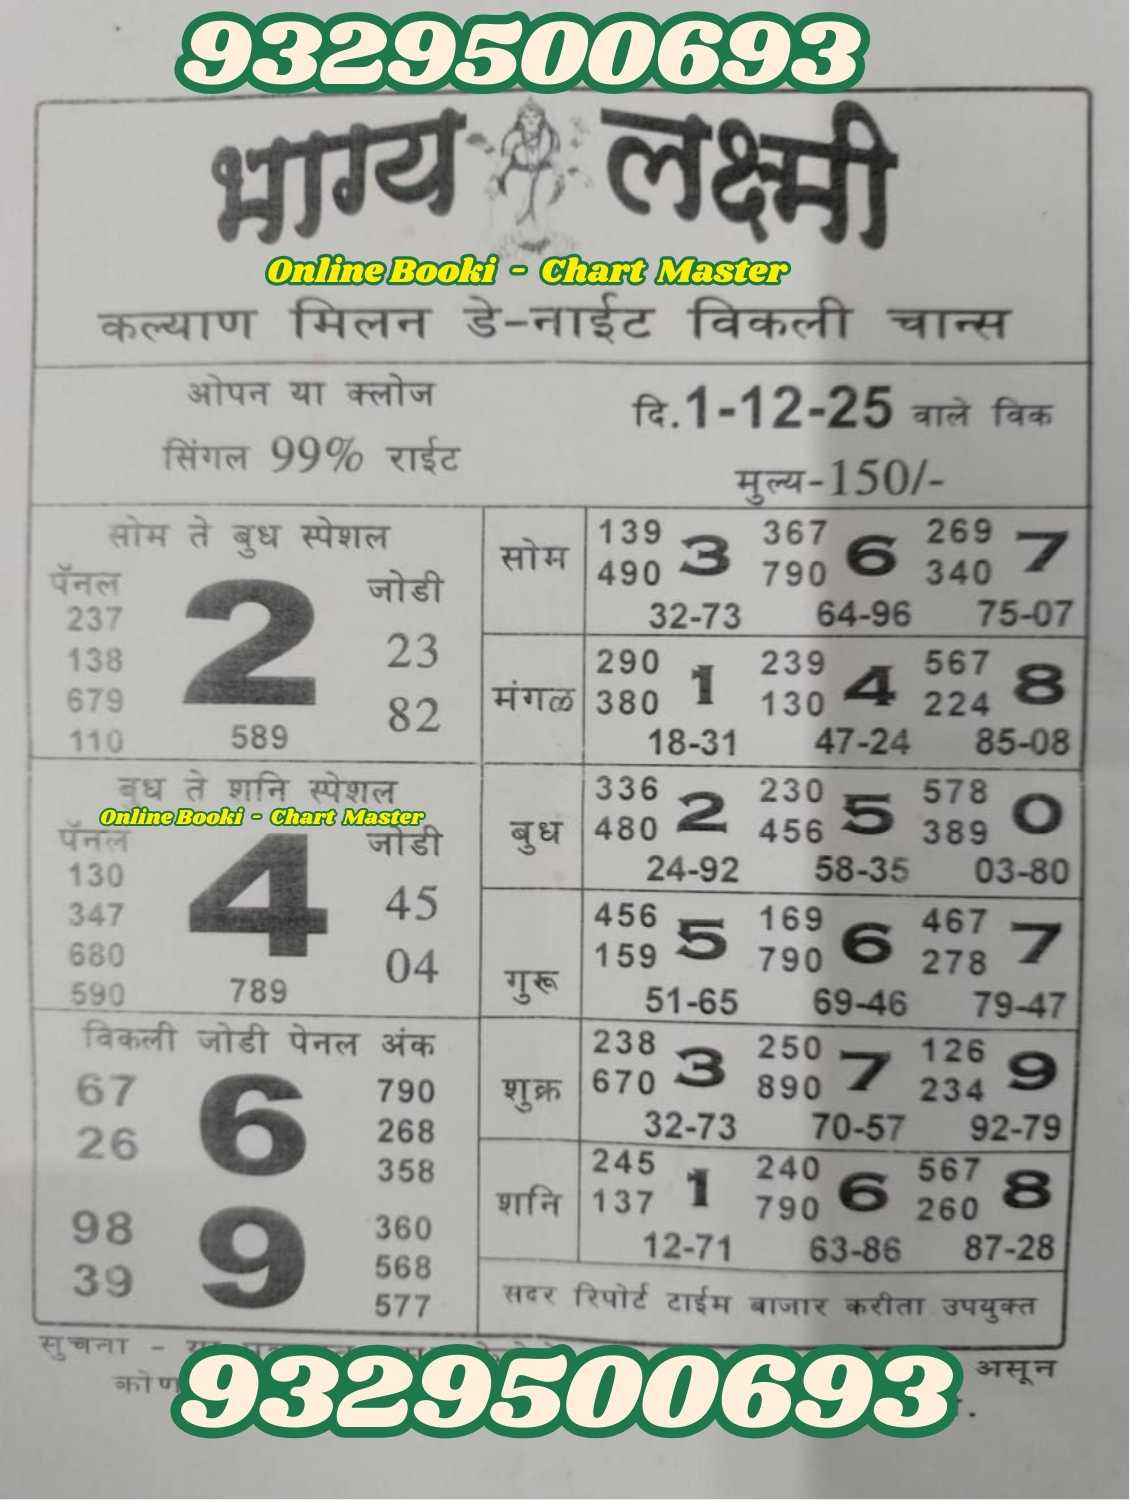 9329500693
भाग्य लक्ष्मी
Online Booki - Chart Master
कल्याण मिलन डे-नाईट विकली चान्स
ओपन या क्लोज
सिंगल 99% राईट
दि.1-12-25 वाले विक
मुल्य-150/-
सोम ते बुध स्पेशल
पॅनल 2 जोडी
237
138 23
679 82
110 589
बुध ते शनि स्पेशल
Online Booki - Chart Master
पॅनल 4 जोडी
130
347 45
680 04
590 789
विकली जोडी पेनल अंक
67 6 790
26 268
358
98 9 360
39 568
577
सोम 139 3 367 6 269 7
490 790 340
32-73 64-96 75-07
मंगळ 290 1 239 4 567 8
380 130 224
18-31 47-24 85-08
बुध 336 2 230 5 578 0
480 456 389
24-92 58-35 03-80
गुरू 456 5 169 6 467 7
159 790 278
51-65 69-46 79-47
शुक्र 238 3 250 7 126 9
670 890 234
32-73 70-57 92-79
शनि 245 1 240 6 567 8
137 790 260
12-71 63-86 87-28
सदर रिपोर्ट टाईम बाजार करीता उपयुक्त
सुचना -
असून
9329500693